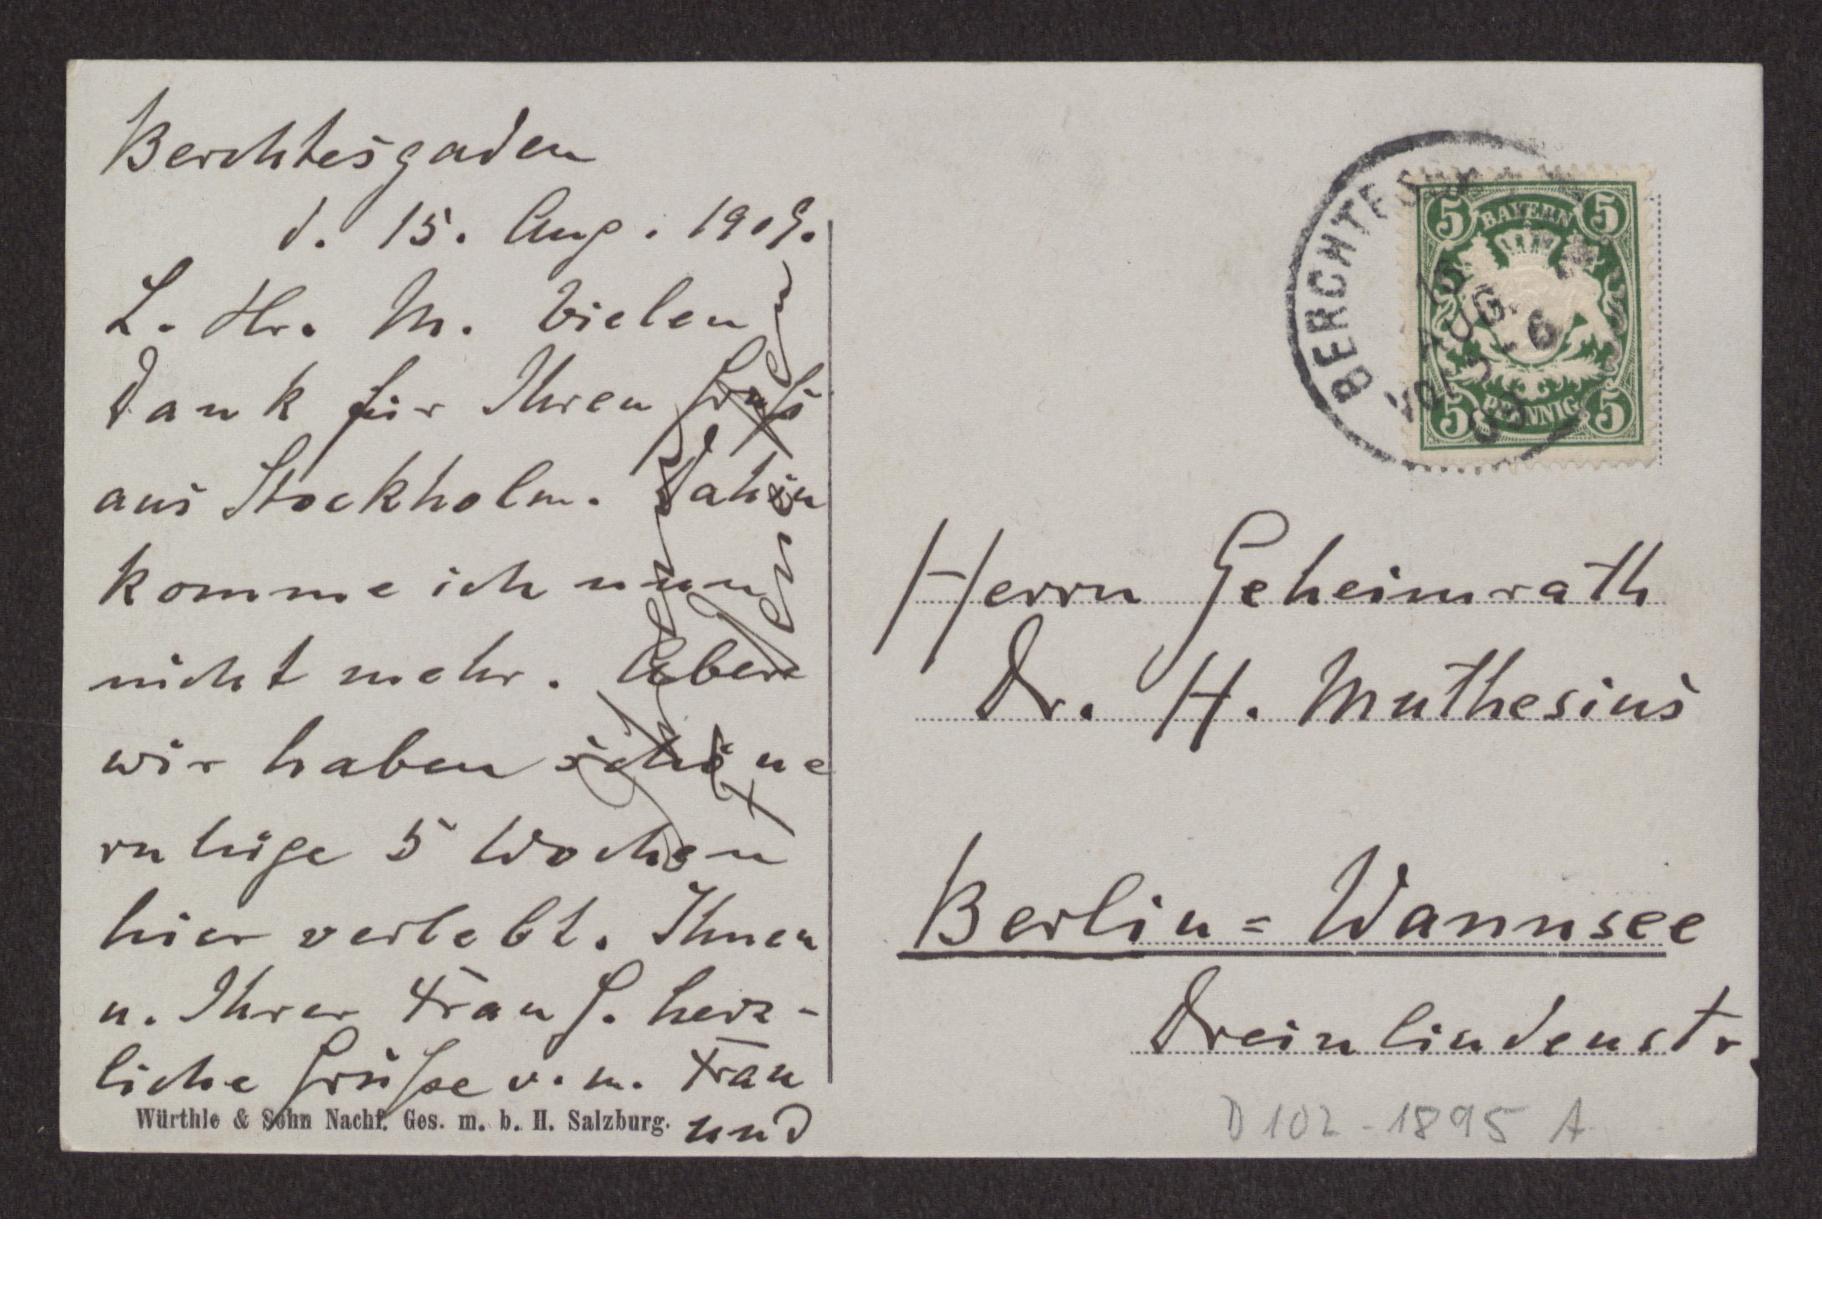 Berchtesgaden
d. 15. Aug. 1909.
L. Hr. M. Vielen
Dank für Ihren Gruß
aus Stockholm. Dahin
komme ich nun
nicht mehr. Aber
wir haben schöne
ruhige 5 Wochen
hier verlebt. Ihnen
u. Ihrer Frau G. herz-
liche Grüße v. m. Frau
und
Würthle & Sohn Nachf. Ges. m. b. H. Salzburg.
BERCHTES
15
AUG.
5 BAYERN 5
5 PFENNIG 5
Herrn Geheimrath
Dr. H. Muthesius
Berlin = Wannsee
Dreinlindenstr.
D 102 - 1895 A